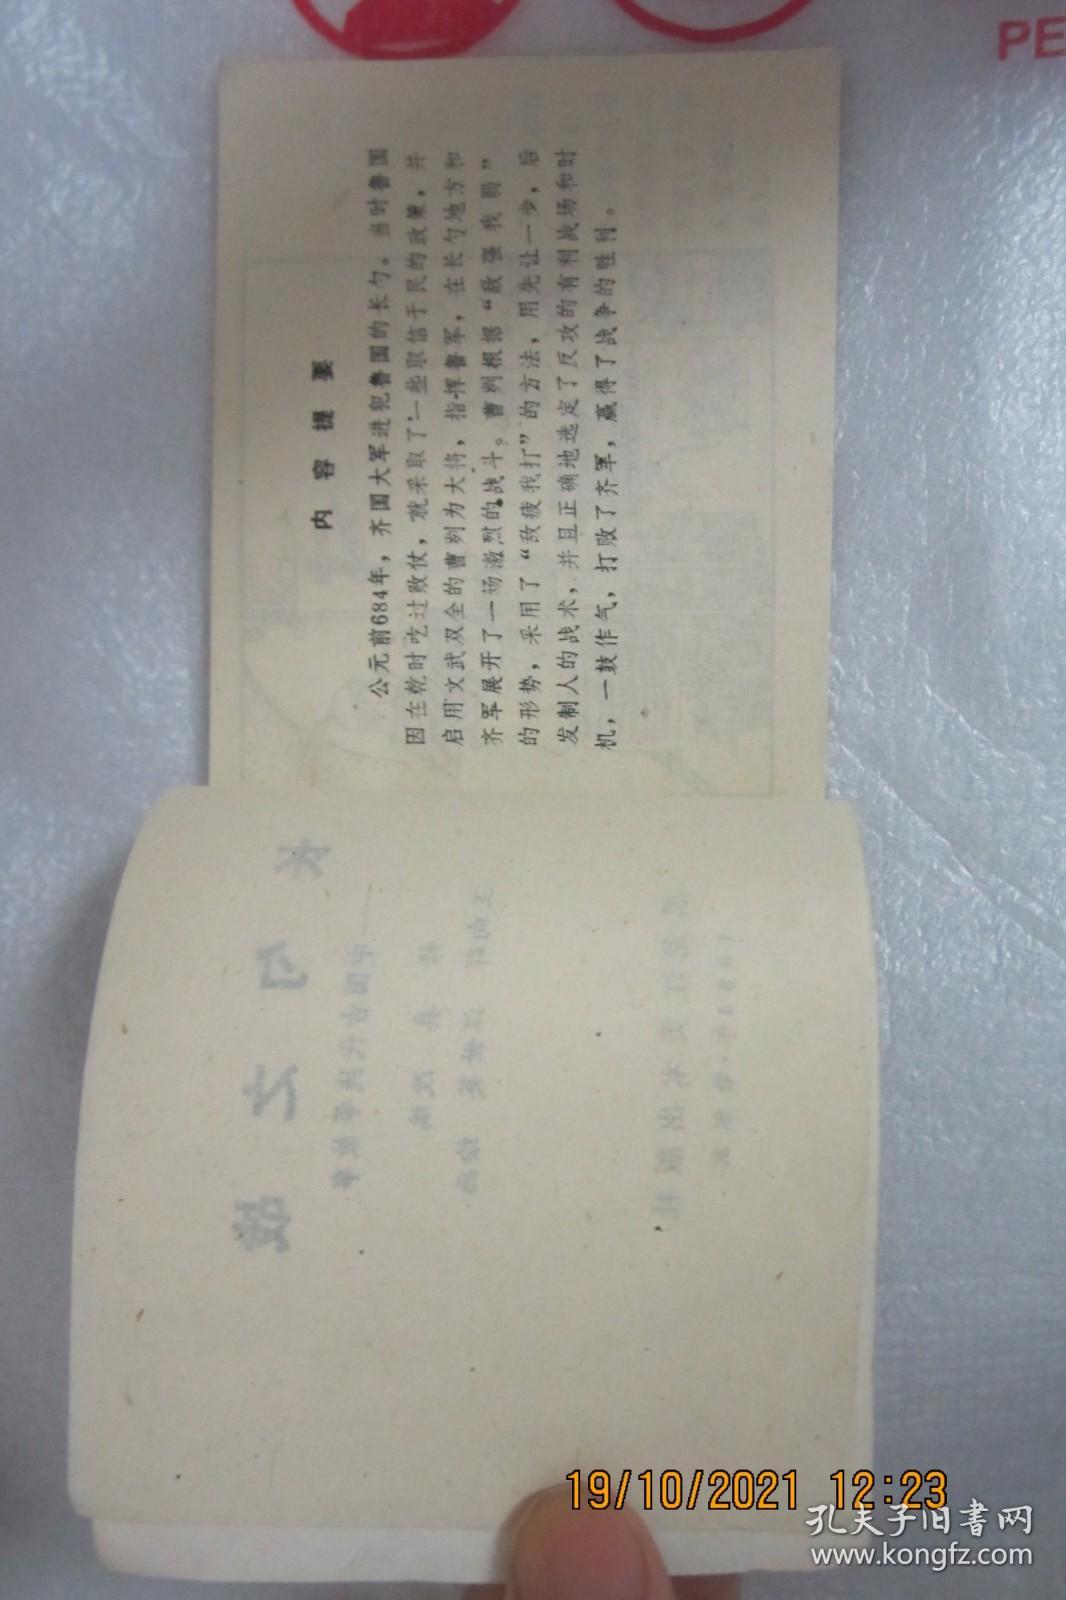 PE
内容提要
公元前684年，齐国大军进犯鲁国的长勺。当时鲁国
因在乾时吃过败仗，就采取了一些取信于民的政策，并
启用文武双全的曹刿为大将，指挥鲁军，在长勺地方和
齐军展开了一场激烈的战斗。曹刿根据“敌强我弱”
的形势，采用了“敌疲我打”的方法，用先让一步，后
发制人的战术，并且正确地选定了反攻的有利战场和时
机，一鼓作气，打败了齐军，赢得了战争的胜利。
19/10/2021 12:23
孔夫子旧书网
www.kongfz.com